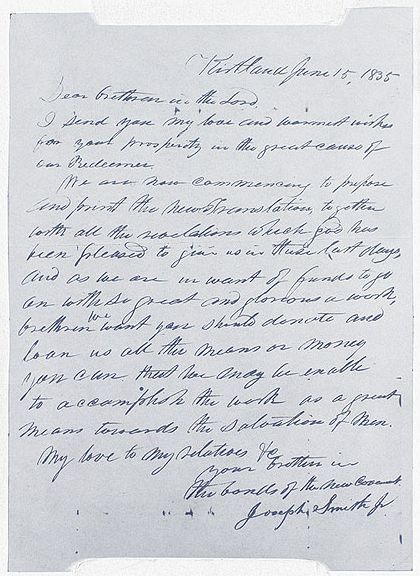 Kirtland June 15, 1835
Dear brethren in the Lord,
I send you my love and warmest wishes
for your prosperity in the great cause of
our Redeemer.
We are now commencing to prepare
and print the New Translation, together
with all the revelations which god has
been pleased to give us in these last days,
and as we are in want of funds to go
on with so great and glorious a work,
brethren we want you should donate and
loan us all the means or money
you can that we may be enable
to accomplish the work as a great
means towards the salvation of men.
My love to my relatives &c
your brethren in
the bonds of the new Covenant.
Joseph Smith Jr